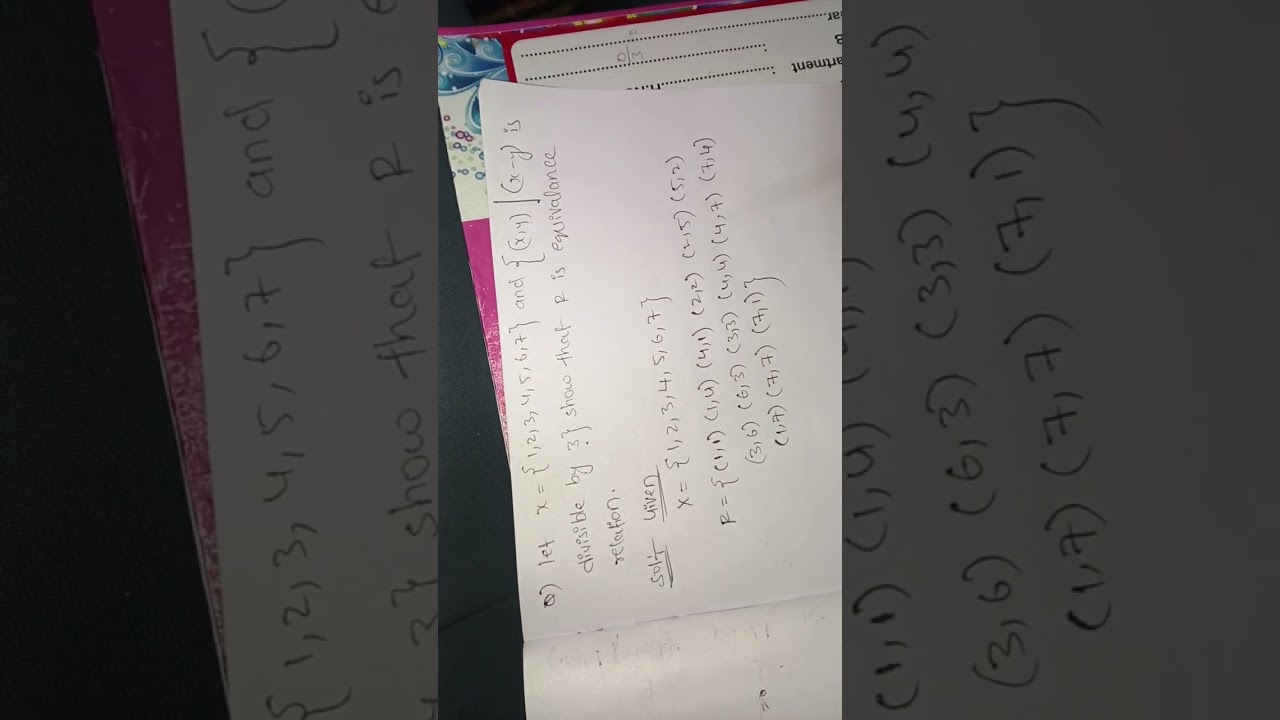 Q) Let x = {1,2,3,4,5,6,7} and {(x,y) | (x-y) is
divisible by 3} show that R is equivalance
relation.
Solt Given
X = {1,2,3,4,5,6,7}
R = {(1,1) (1,4) (4,1) (2,2) (2,5) (5,2)
(3,6) (6,3) (3,3) (4,4) (4,7) (7,4)
(1,7) (7,7) (7,1)}
artment